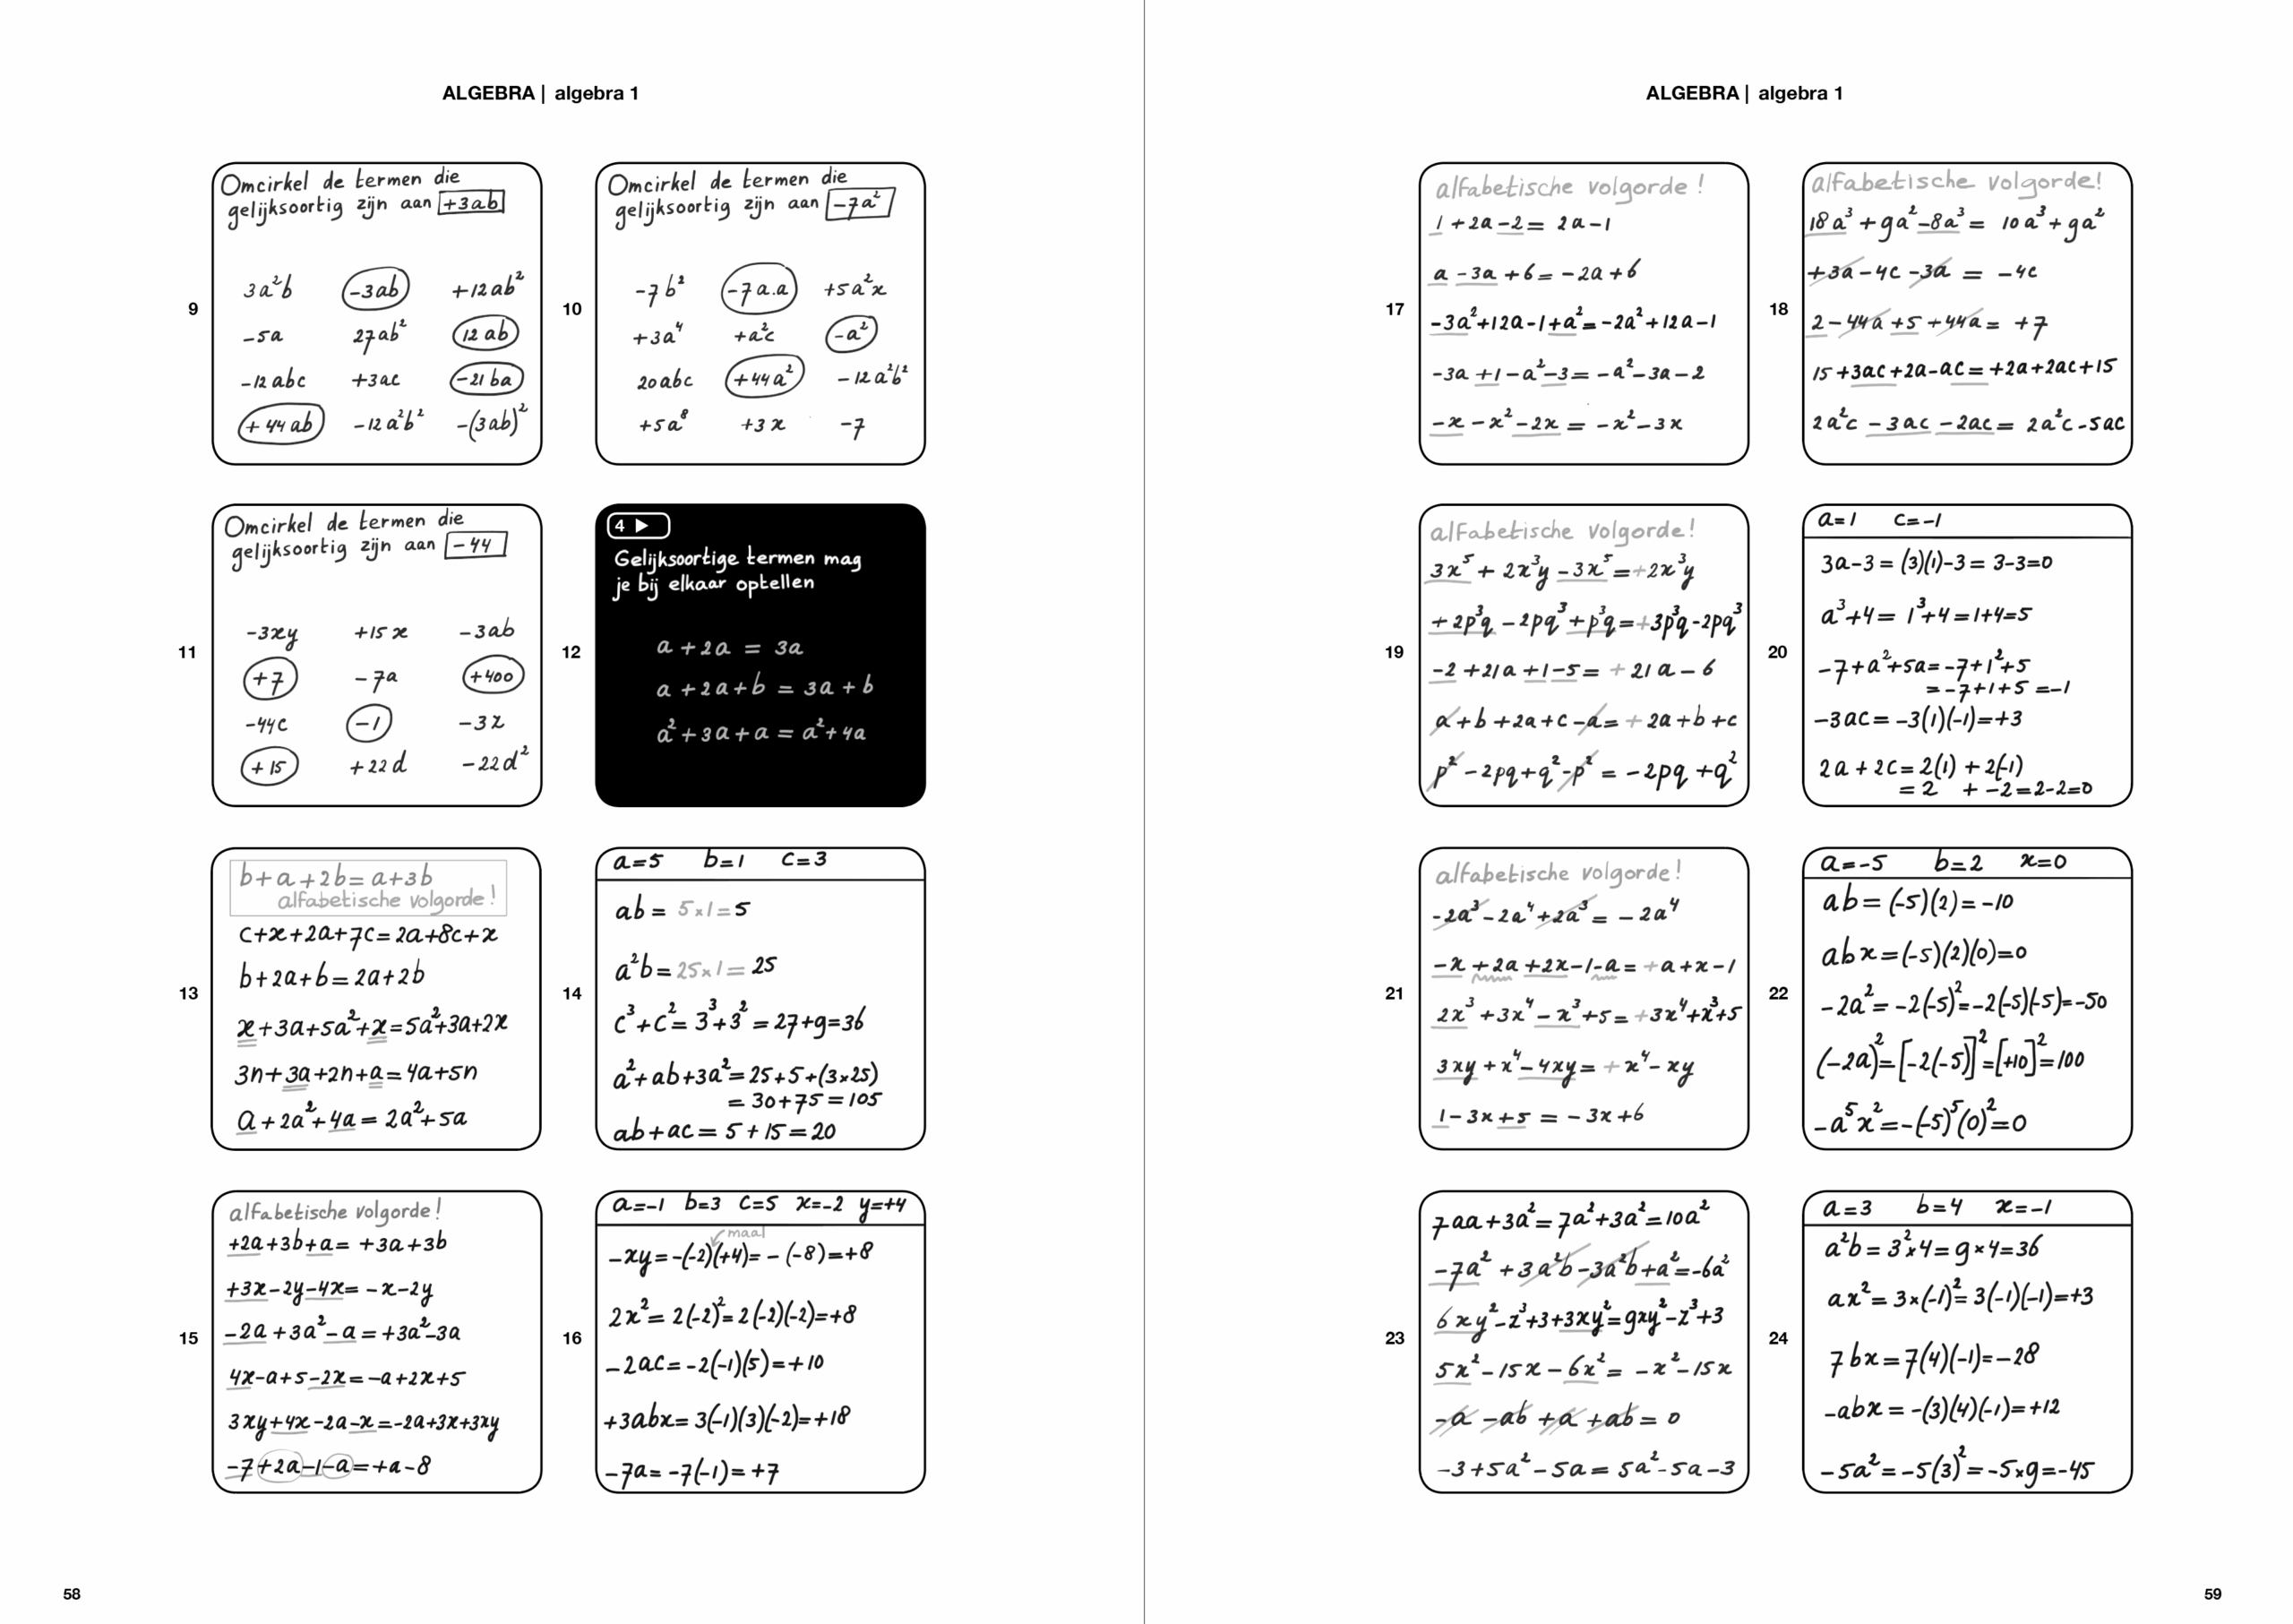 ALGEBRA | algebra 1
9
Omcirkel de termen die
gelijksoortig zijn aan +3ab
3a²b -3ab +12ab²
-5a 27ab² 12ab
-12abc +3ac -21ba
+44ab -12a²b² -(3ab)²
10
Omcirkel de termen die
gelijksoortig zijn aan -7a²
-7b² -7a.a +5a²x
+3a⁴ +a²c -a²
20abc +44a² -12a²b²
+5a⁸ +3x -7
11
Omcirkel de termen die
gelijksoortig zijn aan -44
-3xy +15x -3ab
+7 -7a +400
-44c -1 -3z
+15 +22d -22d²
12
4 ▶
Gelijksoortige termen mag
je bij elkaar optellen
a + 2a = 3a
a + 2a + b = 3a + b
a² + 3a + a = a² + 4a
13
b+a+2b=a+3b
alfabetische volgorde!
c+x+2a+7c=2a+8c+x
b+2a+b=2a+2b
x+3a+5a²+x=5a²+3a+2x
3n+3a+2n+a=4a+5n
a+2a²+4a=2a²+5a
14
a=5 b=1 c=3
ab= 5×1=5
a²b=25×1=25
c³+c²=3³+3²=27+9=36
a²+ab+3a²=25+5+(3×25)
=30+75=105
ab+ac=5+15=20
15
alfabetische volgorde!
+2a+3b+a=+3a+3b
+3x-2y-4x=-x-2y
-2a+3a²-a=+3a²-3a
4x-a+5-2x=-a+2x+5
3xy+4x-2a-x=-2a+3x+3xy
-7+2a-1-a=+a-8
16
a=-1 b=3 c=5 x=-2 y=+4
maal
-xy=-(-2)(+4)=-(-8)=+8
2x²=2(-2)²=2(-2)(-2)=+8
-2ac=-2(-1)(5)=+10
+3abx=3(-1)(3)(-2)=+18
-7a=-7(-1)=+7
58
ALGEBRA | algebra 1
17
alfabetische volgorde!
1+2a-2=2a-1
a-3a+6=-2a+6
-3a²+12a-1+a²=-2a²+12a-1
-3a+1-a²-3=-a²-3a-2
-x-x²-2x=-x²-3x
18
alfabetische volgorde!
18a³+9a²-8a³=10a³+9a²
+3a-4c-3a=-4c
2-44a+5+44a=+7
15+3ac+2a-ac=+2a+2ac+15
2a²c-3ac-2ac=2a²c-5ac
19
alfabetische volgorde!
3x⁵+2x³y-3x⁵=+2x³y
+2p³q-2pq³+p³q=+3p³q-2pq³
-2+21a+1-5=+21a-6
a+b+2a+c-a=+2a+b+c
p²-2pq+q²-p²=-2pq+q²
20
a=1 c=-1
3a-3=(3)(1)-3=3-3=0
a³+4=1³+4=1+4=5
-7+a²+5a=-7+1²+5
=-7+1+5=-1
-3ac=-3(1)(-1)=+3
2a+2c=2(1)+2(-1)
=2 + -2=2-2=0
21
alfabetische volgorde!
-2a³-2a⁴+2a³=-2a⁴
-x+2a+2x-1-a=+a+x-1
2x³+3x⁴-x³+5=+3x⁴+x³+5
3xy+x⁴-4xy=+x⁴-xy
1-3x+5=-3x+6
22
a=-5 b=2 x=0
ab=(-5)(2)=-10
abx=(-5)(2)(0)=0
-2a²=-2(-5)²=-2(-5)(-5)=-50
(-2a)²=[-2(-5)]²=[+10]²=100
-a⁵x²=-(-5)⁵(0)²=0
23
7aa+3a²=7a²+3a²=10a²
-7a²+3a²b-3a²b+a²=-6a²
6xy²-z³+3+3xy²=9xy²-z³+3
5x²-15x-6x²=-x²-15x
-a-ab+a+ab=0
-3+5a²-5a=5a²-5a-3
24
a=3 b=4 x=-1
a²b=3²×4=9×4=36
ax²=3×(-1)²=3(-1)(-1)=+3
7bx=7(4)(-1)=-28
-abx=-(3)(4)(-1)=+12
-5a²=-5(3)²=-5×9=-45
59